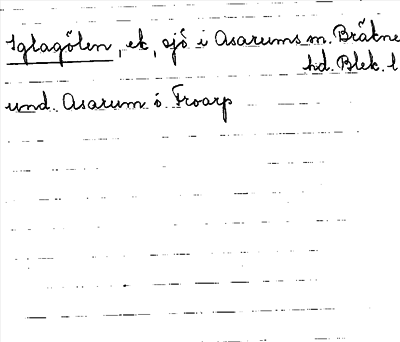 Iglagölen, ek, sjö i Asarums sn. Bräkne
hd. Blek. l
und. Asarum o. Froarp